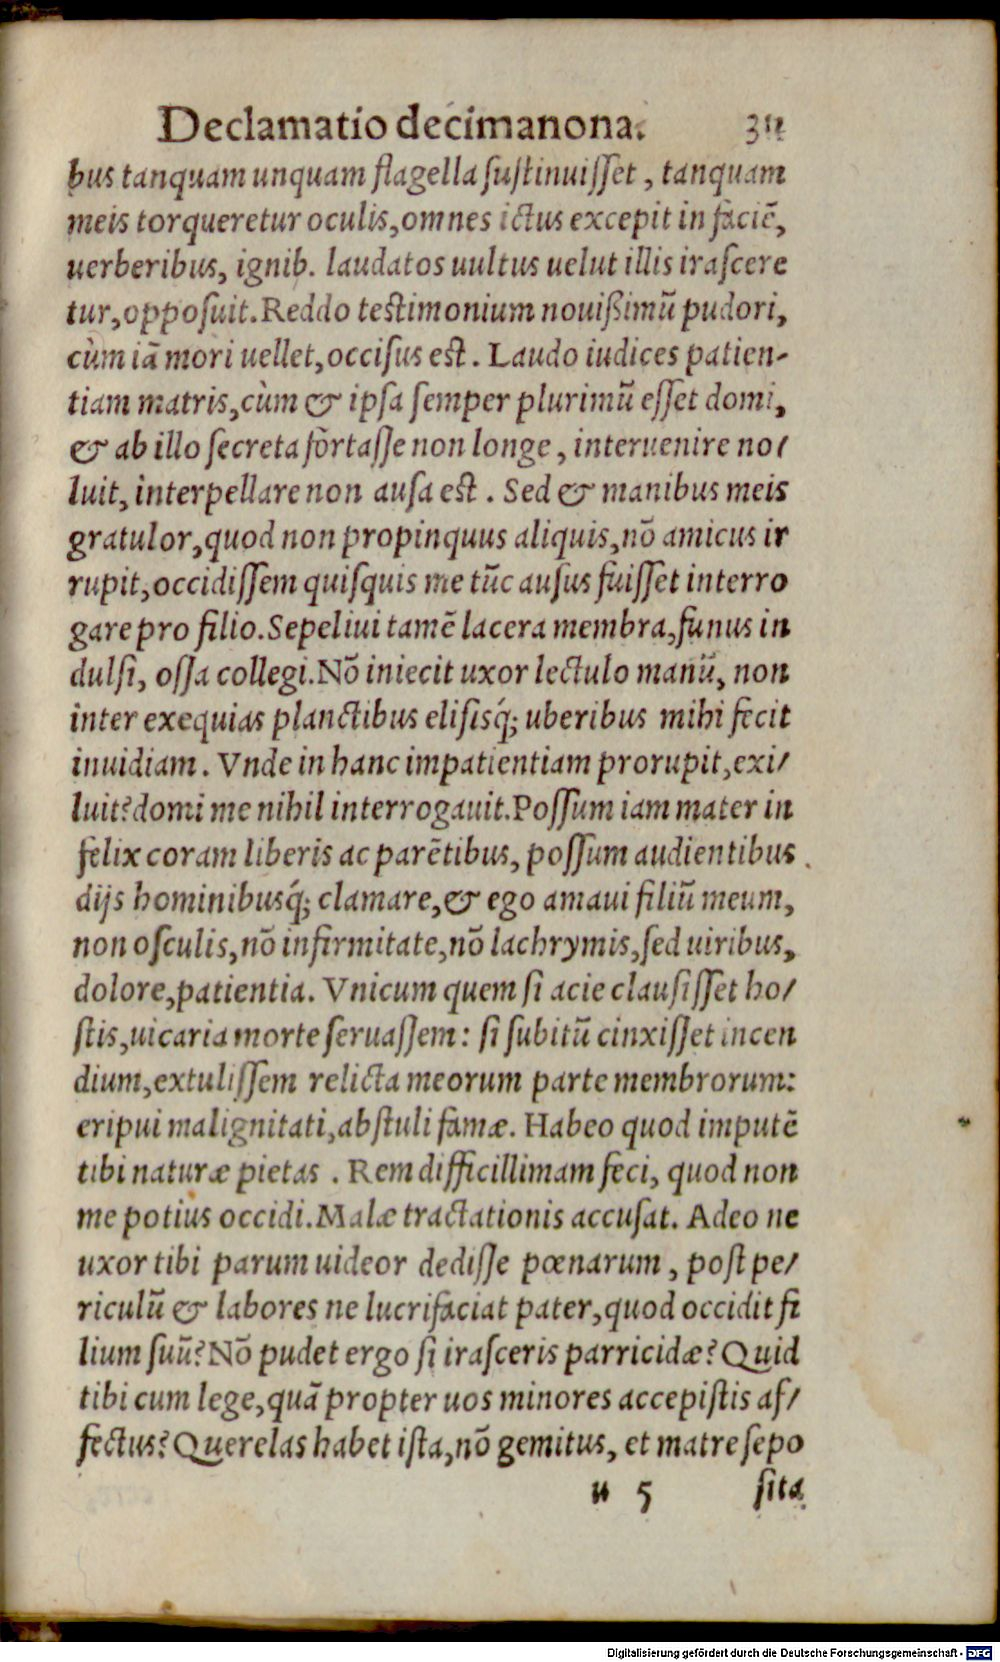 Declamatio decimanona. 311
bus tanquam unquam flagella sustinuisset, tanquam
meis torqueretur oculis, omnes ictus excepit in faciẽ,
uerberibus, ignib. laudatos uultus uelut illis irascere
tur, opposuit. Reddo testimonium nouißimũ pudori,
cùm iã mori uellet, occisus est. Laudo iudices patien-
tiam matris, cùm & ipsa semper plurimũ esset domi,
& ab illo secreta fortasse non longe, interuenire no/
luit, interpellare non ausa est. Sed & manibus meis
gratulor, quod non propinquus aliquis, nõ amicus ir
rupit, occidissem quisquis me tũc ausus fuisset interro
gare pro filio. Sepeliui tamẽ lacera membra, funus in
dulsi, ossa collegi. Nõ iniecit uxor lectulo manũ, non
inter exequias planctibus elisisq́; uberibus mihi fecit
inuidiam. Vnde in hanc impatientiam prorupit, exi/
luit? domi me nihil interrogauit. Possum iam mater in
felix coram liberis ac parẽtibus, possum audientibus
dijs hominibusq́; clamare, & ego amaui filiũ meum,
non osculis, nõ infirmitate, nõ lachrymis, sed uiribus,
dolore, patientia. Vnicum quem si acie clausisset ho/
stis, uicaria morte seruassem: si subitũ cinxisset incen
dium, extulissem relicta meorum parte membrorum:
eripui malignitati, abstuli famæ. Habeo quod imputẽ
tibi naturæ pietas. Rem difficillimam feci, quod non
me potius occidi. Malæ tractationis accusat. Adeo ne
uxor tibi parum uideor dedisse pœnarum, post pe/
riculũ & labores ne lucrifaciat pater, quod occidit fi
lium suũ? Nõ pudet ergo si irasceris parricidæ? Quid
tibi cum lege, quã propter uos minores accepistis af/
fectus? Querelas habet ista, nõ gemitus, et matre sepo
u 5 sita
Digitalisierung gefördert durch die Deutsche Forschungsgemeinschaft - DFG